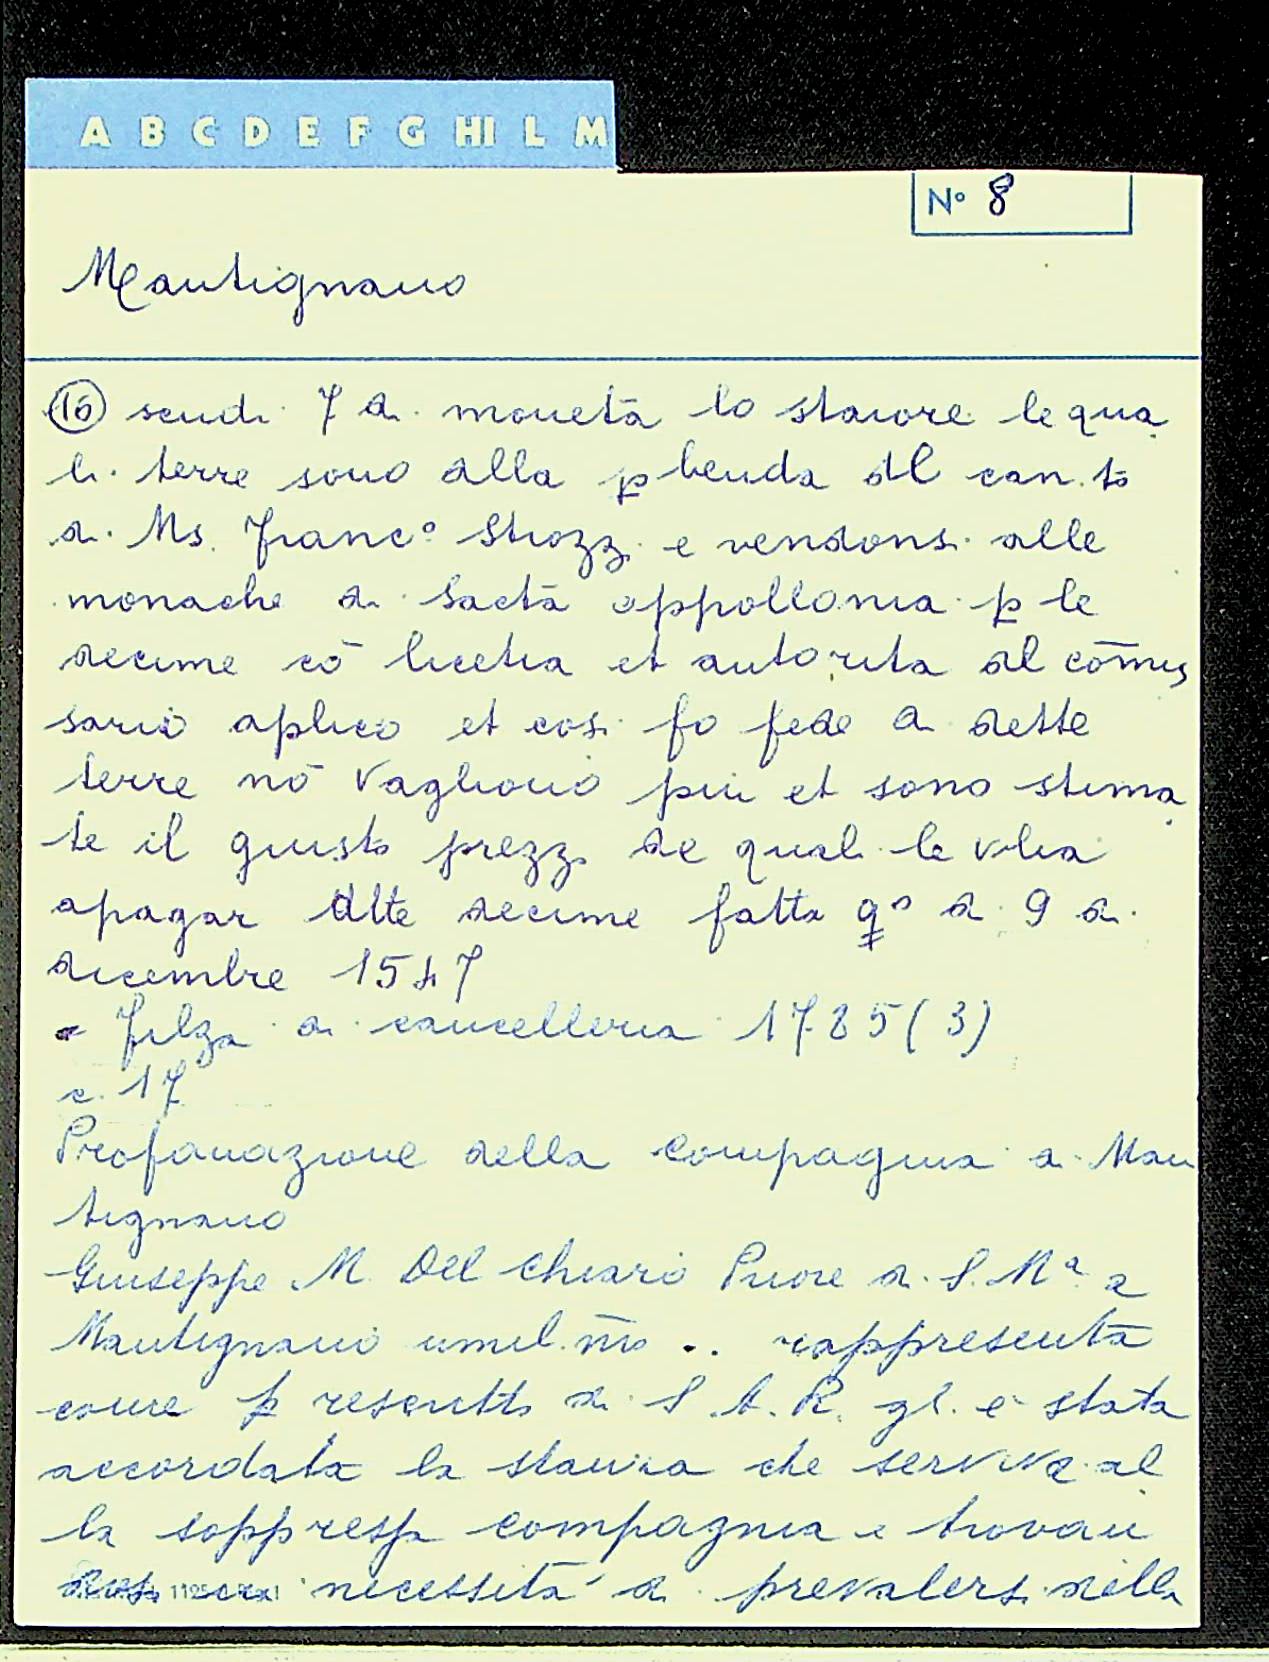 A B C D E F G HI L M
N° 8
Mantignano
(16) scudi 7 di moneta lo staiore le qua
li terre sono alla p̲benda dl can.to
di Ms. Franc° Strozzi e vendonsi alle
monache di Sactā appollonia p̲ le
decime cō licetia et autorita dl cōmis
sario aplico et cosi fo fede a dette
terre nō vagliono piu et sono stima
te il giusto prezzo de quali le
apagar dtte decime fatta q° di 9 di
dicembre 1547
- Filza di cancelleria 1785 (3)
c. 17
Profanazione della compagnia a Man
tignano
Giuseppe M. Del Chiaro Priore di S. Mª a
Mantignano umil.m̄o .. rappresenta
come p̲ rescritto di S. A. R. gl. è stata
accordata la stanza che serviva al
la soppressa compagnia e trovan
dosi in necessità di prevalersi della